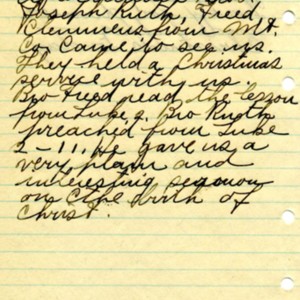 Joseph Ruth, Freed
Clemmens from Mt.
Co. Came to see us.
They held a Christmas
service with us.
Bro Freed read the lesson
from Luke 2. Bro Ruth
preached from Luke
2-11. He gave us a
very plain and
interesting sermon
on the birth of
Christ.